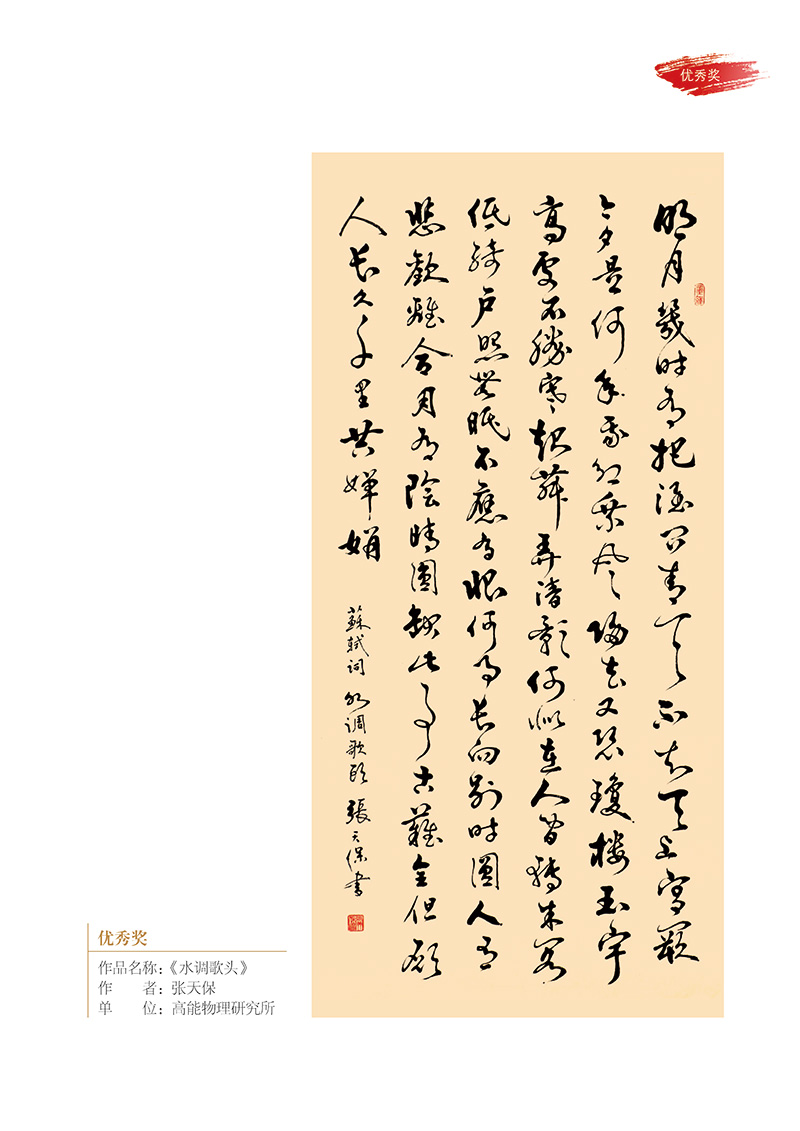 优秀奖
明月幾时有把酒问青天不知天上宫闕
今夕是何年我欲乘风归去又恐瓊楼玉宇
高处不勝寒起舞弄清影何似在人间转朱阁
低绮户照无眠不應有恨何事长向别时圆人有
悲歡離合月有陰晴圆缺此事古難全但願
人长久千里共婵娟
蘇轼词 水调歌头 張天保书
优秀奖
作品名称：《水调歌头》
作　　者：张天保
单　　位：高能物理研究所